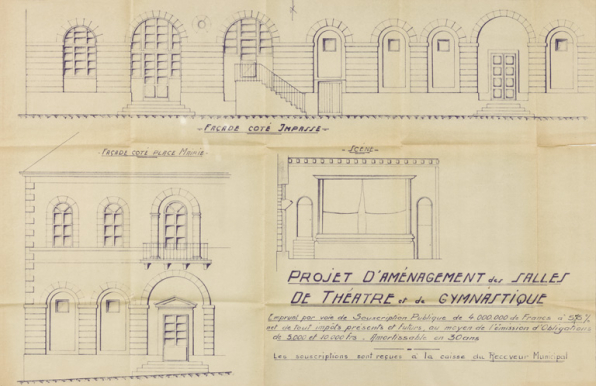 - FAÇADE COTÉ IMPASSE -
- FAÇADE COTÉ PLACE MAIRIE -
- SCENE -
PROJET D'AMÉNAGEMENT des SALLES
DE THÉATRE et de GYMNASTIQUE
Emprunt par voie de Souscription Publique de 4.000.000 de Francs à %
net de tout impôts présents et futurs, au moyen de l'émission d'Obligations
de 5.000 et 10.000 frs. Amortissable en 30 ans
Les souscriptions sont reçues à la caisse du Receveur Municipal